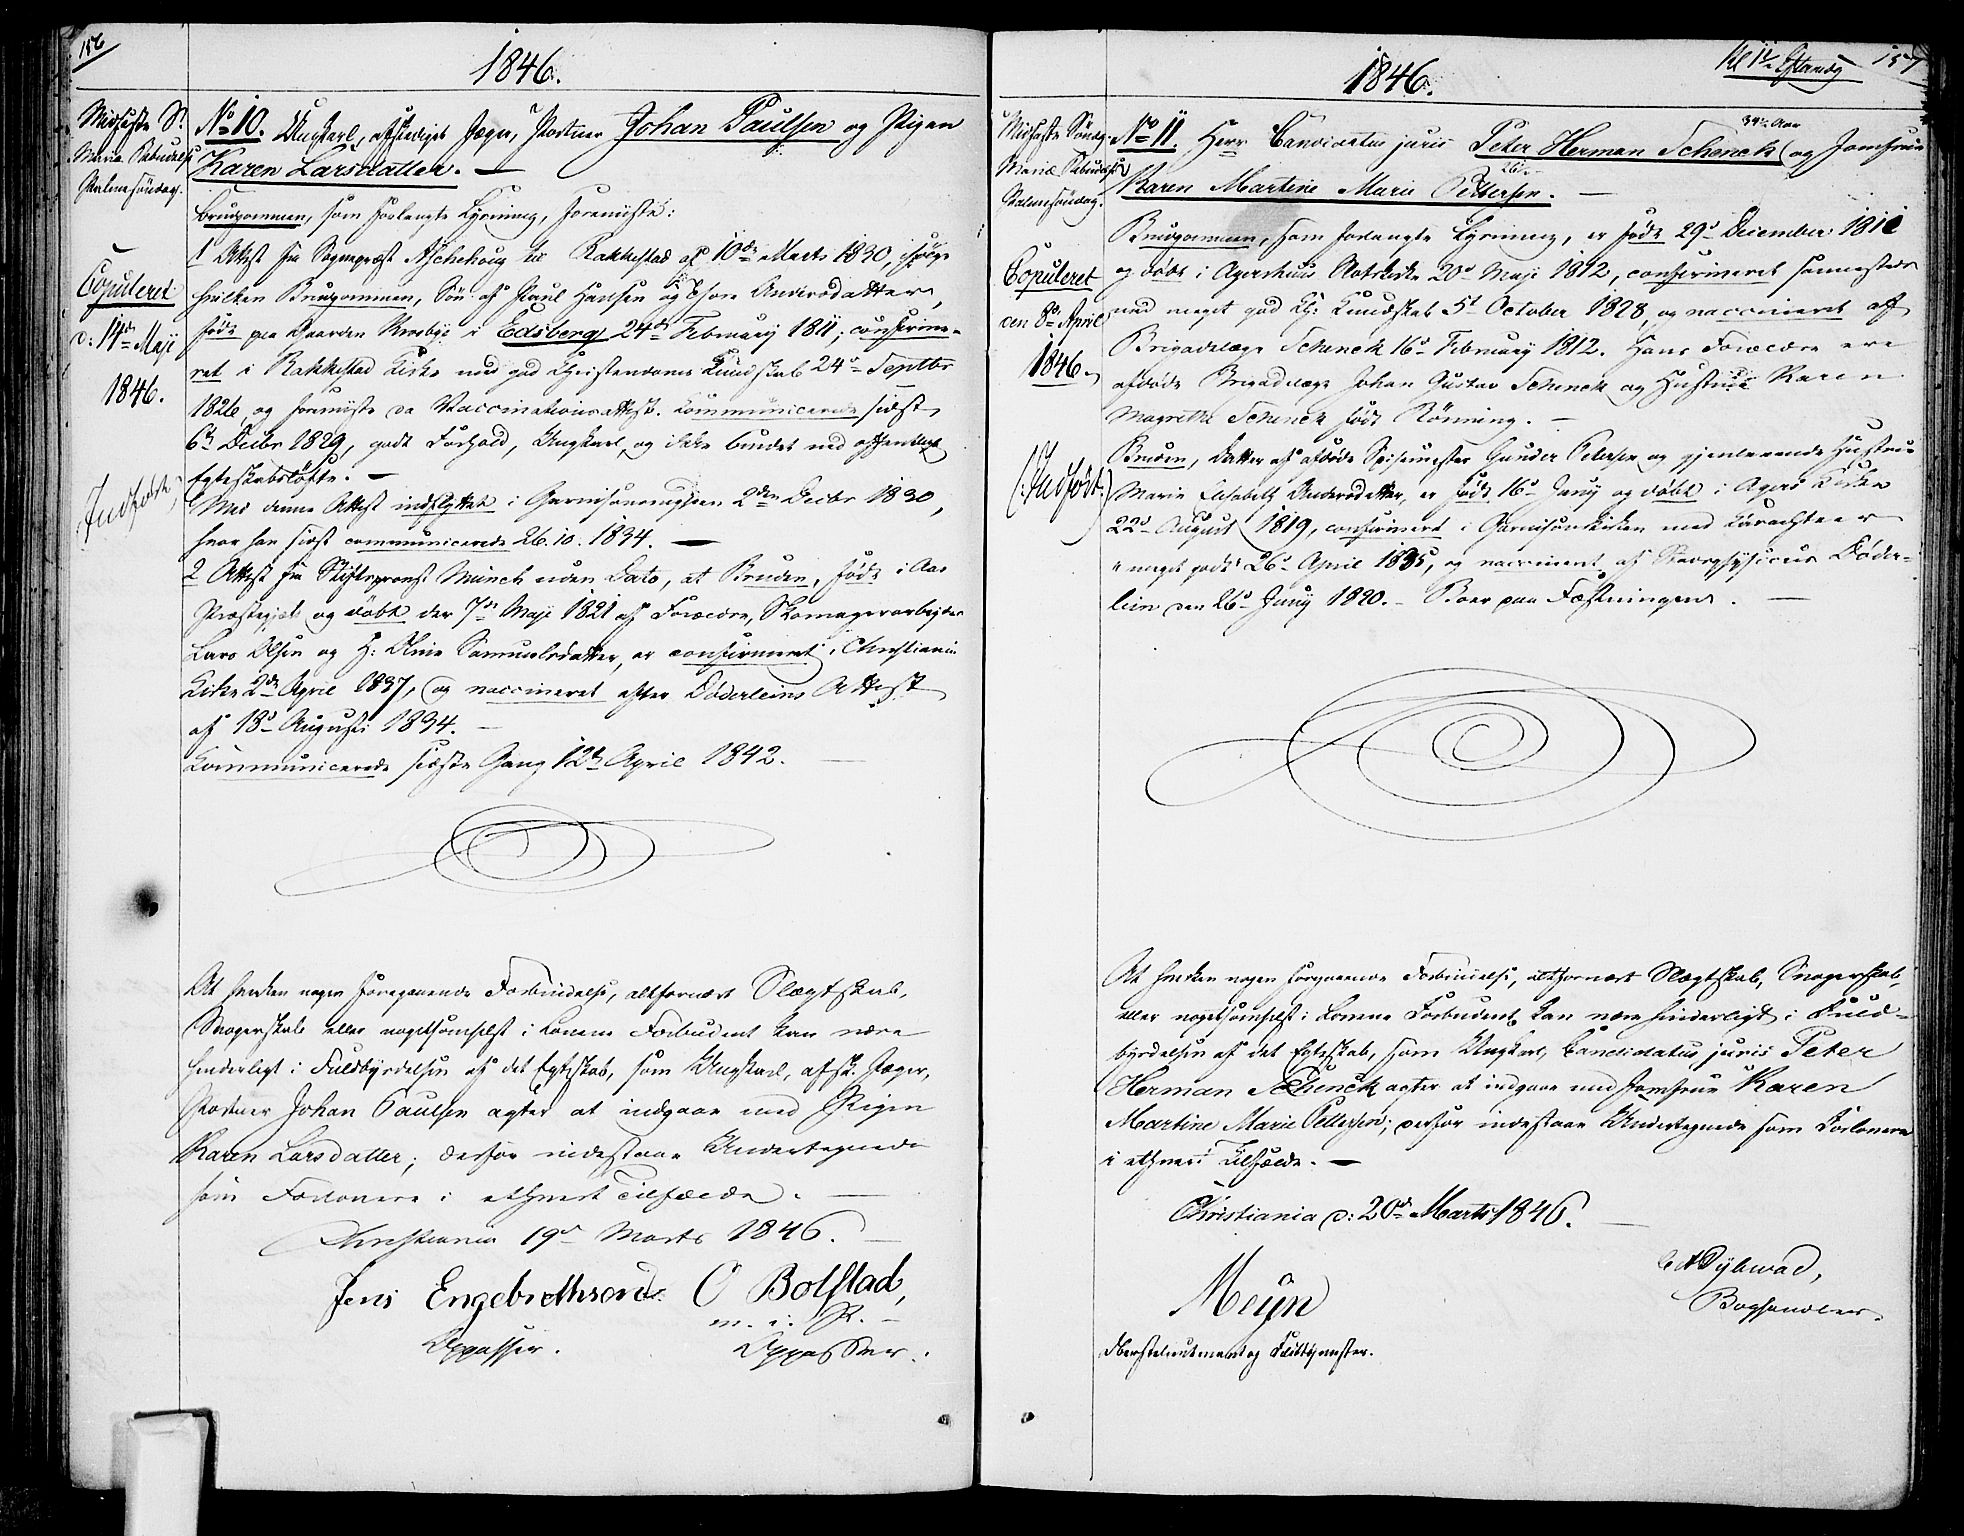 156
1846.
Midfaste S.
Mariæ Bebudelse
Palmesöndag.
Copuleret
d: 14de Maji
1846.
Indført
No 10. Ungkarl, afskediget Jæger, Portner Johan Paulsen og Pigen
Karen Larsdatter. —
Brudgommen, som forlangte Lysning, foreviste:
1 Attest fra Sognepræst Aschehoug til Rakkestad af 10de Marts 1830, ifølge
hvilken Brudgommen, Søn af Paul Hansen og Thore Andersdatter,
født paa Gaarden i Edsberg 24de February 1811; confirme-
ret i Rakkestad Kirke med god Christendoms Kundskab 24de Septbr
1826 og foreviste da Vaccinationsattest. Kommunicerede sidst
6te Decbr 1829, godt Forhold, Ungkarl, og ikke bundet ved offentligt
Egteskabsløfte. —
Med denne Attest indflyttet i Garnisonsmenigheden 2den Decbr 1830,
hvor han sidst communicerede 26.10.1834. —
2 Attest fra Stiftsprovst Münch uden Dato, at Bruden, født i Aas
Præstegjeld og døbt der 7de Maji 1821 af Forældre, Skomagerarbeider
Lars Olsen og H: Olivie Samuelsdatter, er confirmeret i Christiania
Kirke 2den April 1837, og vaccineret efter Döderleins Attest
af 18de August 1834. —
Kommunicerede sidste Gang 12te April 1842. —
At hverken nogen foregaaende Forbindelse, altfornært Slægtskab,
Svogerskab eller nogetsomhelst i Lovene Forbudent kan være
hinderligt i Fuldbyrdelsen af det Egteskab, som Ungkarl, afsk. Jæger,
Portner Johan Paulsen agter at indgaae med Pigen
Karen Larsdatter; derfor indestaae Undertegnede
som Forlovere i ethvert Tilfælde. —
Christiania 19de Marts 1846. —
Jens Engebrethsen O Bolstad,
m. i. P. —
Oppasser. Oppasser.
157
1846.
Midfaste Söndg.
Mariæ Bebudelse
Palmesöndag.
Copuleret
den 8de April
1846.
(: Indført :)
34 1/4 Aar
No 11. Herr Candidatus juris Peter Herman Schenck og Jomfrue
26
Karen Martine Marie Pettersen. —
Brudgommen, som forlangte Lysning, er født 29de December 1811
og døbt i Agershuus Slotskirke 20de Maji 1812, confirmeret sammesteds
med meget god Ch: Kundskab 5te October 1828, og vaccineret af
Brigadelæge Schenck 16de February 1812. Hans Forældre ere
afdøde Brigadelæge Johan Gustav Schenck og Hustrue Karen
Magrethe Schenck født Rönning. —
Bruden, Datter af afdøde Spisemester Gunder Petersen og gjenlevende Hustrue
Marie Elisabeth Andersdatter, er født 16de Juny og døbt i Agers Kirke
22de August 1819, confirmeret i Garnisonskirken med Karachteer
"meget godt" 26de April 1835, og vaccineret af Stadsphysicus Döder-
lein den 26de Juny 1820. – Boer paa Fæstningen. —
At hverken nogen foregaaende Forbindelse, altfornært Slægtskab, Svogerskab,
eller nogetsomhelst i Lovene Forbudent kan være hinderligt i Fuld-
byrdelsen af det Egteskab, som Ungkarl, Candidatus juris Peter
Herman Schenck agter at indgaae med Jomfrue Karen
Martine Marie Pettersen; derfor indestaae Undertegnede som Forlovere
i ethvert Tilfælde. —
Christiania d: 20de Marts 1846. —
Meyn
Oberstelieutenant og Feldttøymester.
Dybwad,
Boghandler.